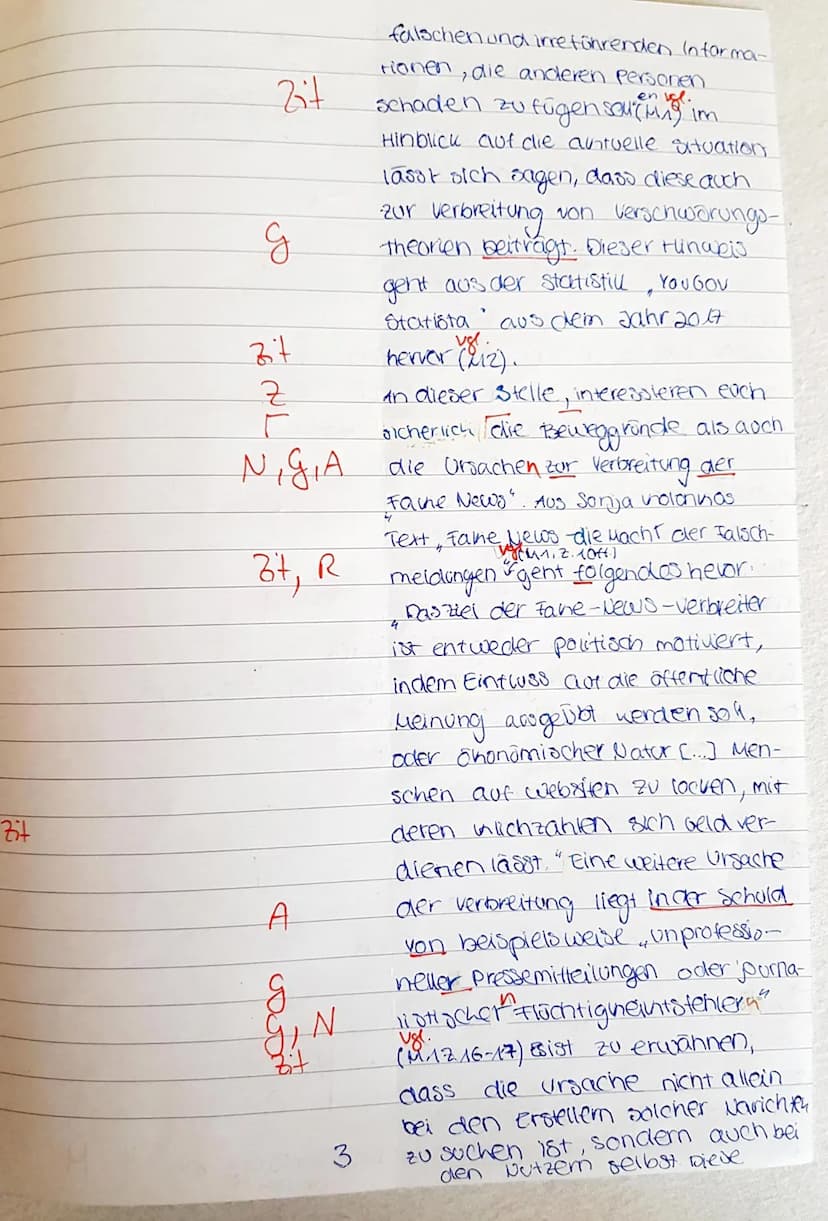 falschen und irreführenden Informa-
tionen, die anderen Personen
Zit schaden zufügen soll en (vgl. M1) im
Hinblick auf die aktuelle Situation
lässt sich sagen, dass diese auch
zur Verbreitung von Verschwörungs-
g theorien beiträgt. Dieser Hinweis
geht aus der Statistik „YouGov
Statista" aus dem Jahr 2017
Zit hervor (vgl. M2).
Z An dieser Stelle, interessieren euch
Γ sicherlich die Beweggründe als auch
N, g, A die Ursachen zur Verbreitung der
„Fake News". Aus Sonja
Text „Fake News - die Macht der Falsch-
Zit, R meldungen" (vgl. M1, Z. 10ff) geht folgendes hevor:
„Das Ziel der Fake-News-Verbreiter
ist entweder politisch motiviert,
indem Einfluss auf die öffentliche
Meinung ausgeübt werden soll,
oder ökonomischer Natur [...] Men-
schen auf Websiten zu locken, mit
Zit deren Klickzahlen sich Geld ver-
dienen lässt." Eine weitere Ursache
A der Verbreitung liegt in der Schuld
von beispielsweise „unprofessio-
g neller Pressemitteilungen oder journa-
g, N listischer n Flüchtigkeintsfehlern"
Zit (vgl. M1 Z 16-17) Es ist zu erwähnen,
dass die Ursache nicht allein
bei den Erstellern solcher Narichten
zu suchen ist, sondern auch bei
3 den Nutzern selbst. Diese